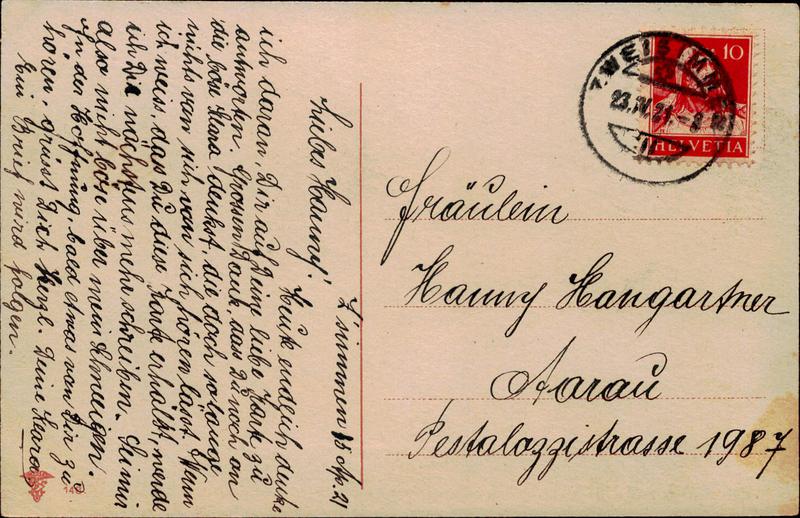 Z'simmen Ap. 21
Liebes Hanny!
Heute endlich denke
ich daran Dir auf Deine liebe Karte zu
antworten. Grossen Dank, das Du noch an
die böse Klara denkst, die doch so lange
nichts von sich von sich hören lässt. Wenn
ich weis, das Du diese Karte erhältst, werde
ich Dir nächstens mehr schreiben. Sei mir
also nicht böse über mein Schweigen.
In der Hoffnung bald etwas von Dir zu
hören, grüsst Dich Herzl. Deine Klara
Ein Brief wird folgen.
ZWEISIMMEN
23.IV.21.-8
10
HELVETIA
Fräulein
Hanny Hangartner
Aarau
Pestalozzistrasse 1987